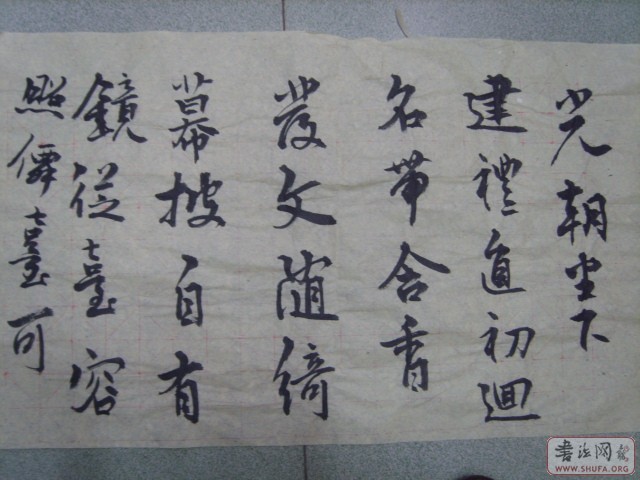 光朝坐下
建禮直初迴
名帶含香
發文隨綺
幕披自有
鏡從臺容
照儛臺可
書法网
WWW.SHUFA.ORG